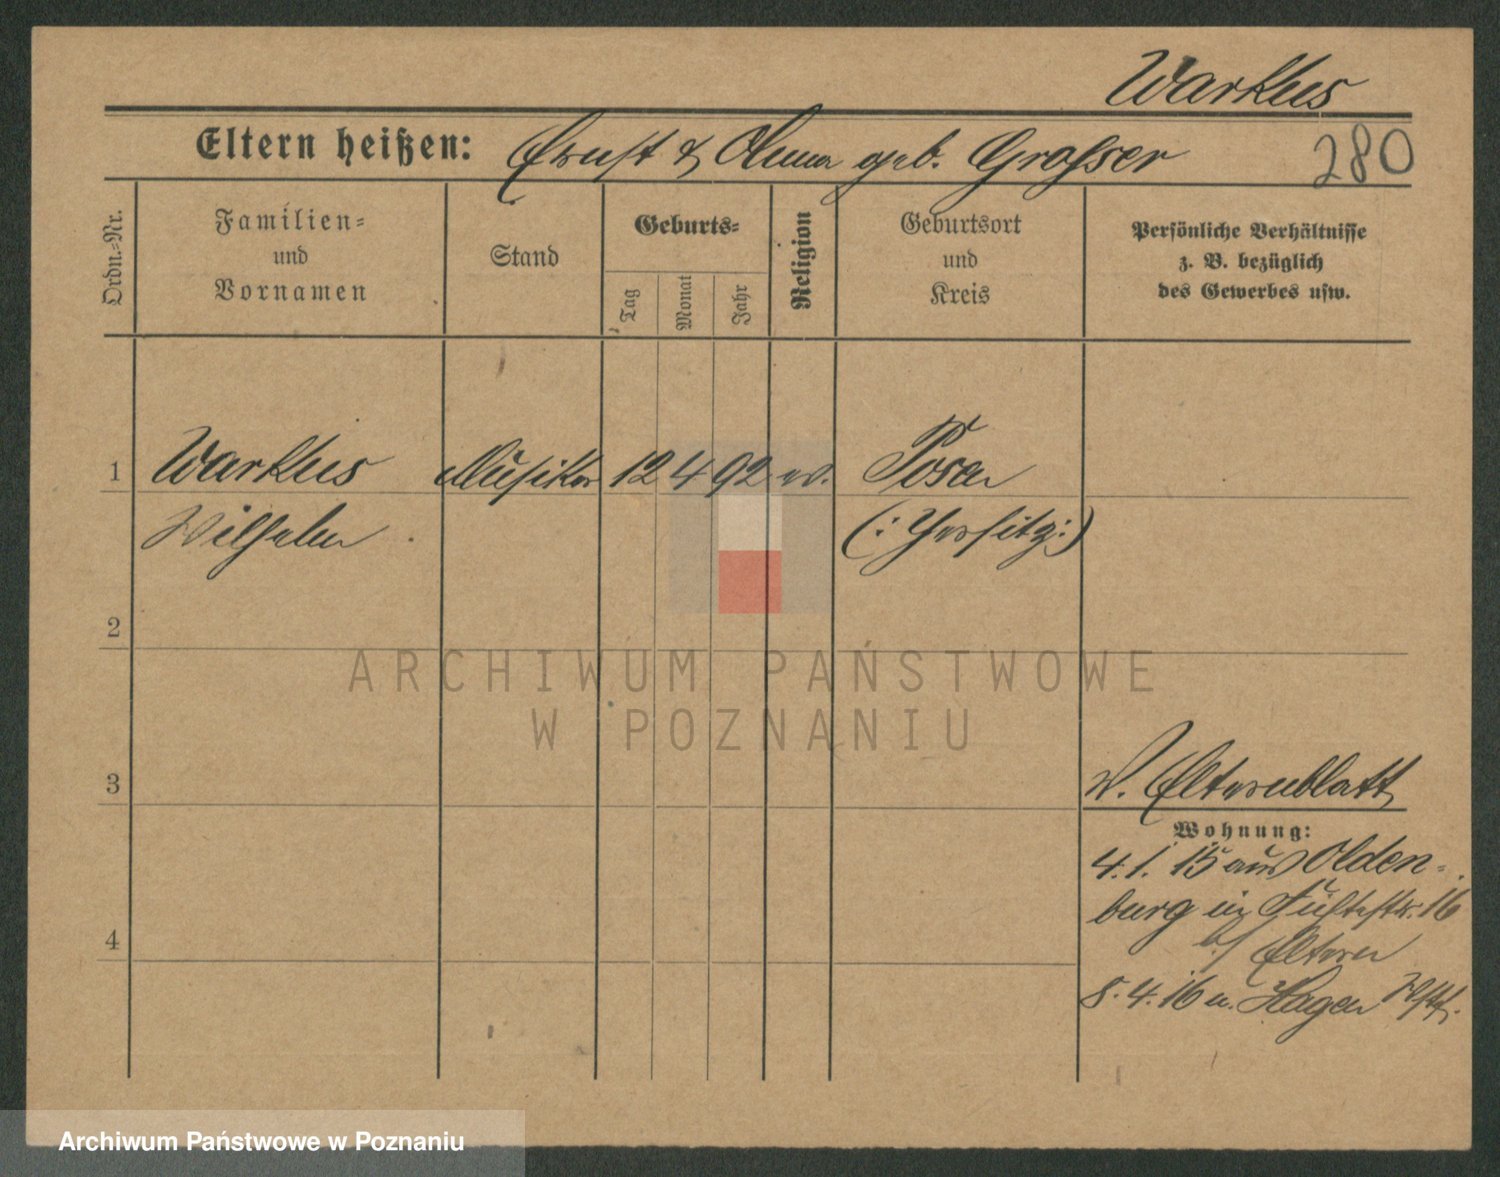 Warkus
Eltern heißen: Ernst & Anna geb. Grosser
280
Ordn.-Nr.
Familien-
und
Vornamen
Stand
Geburts-
Tag
Monat
Jahr
Religion
Geburtsort
und
Kreis
Persönliche Verhältnisse
z. B. bezüglich
des Gewerbes usw.
1
Warkus
Musiker
12 4 92
Posen
Wilhelm
(: Jersitz :)
2
ARCHIWUM PAŃSTWOWE
W POZNANIU
3
Elternblatt
Wohnung:
4. 1. 15 aus Olden-
burg in 16
b/ Eltern
4
8. 4. 16 n. Hagen Wstf.
Archiwum Państwowe w Poznaniu